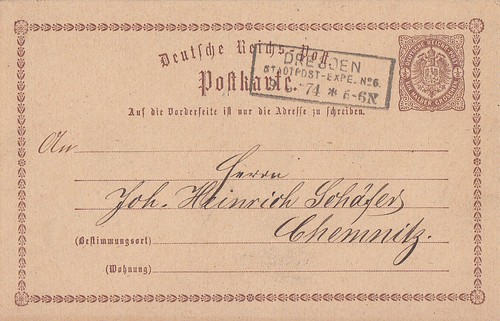 Deutsche Reichs-Post
Postkarte.
DRESDEN
STADTPOST-EXPE. No 6.
74 * 5-6N
Auf die Vorderseite ist nur die Adresse zu schreiben.
An
Herrn
Joh. Heinrich Schäfer
Chemnitz.
(Bestimmungsort)
(Wohnung)